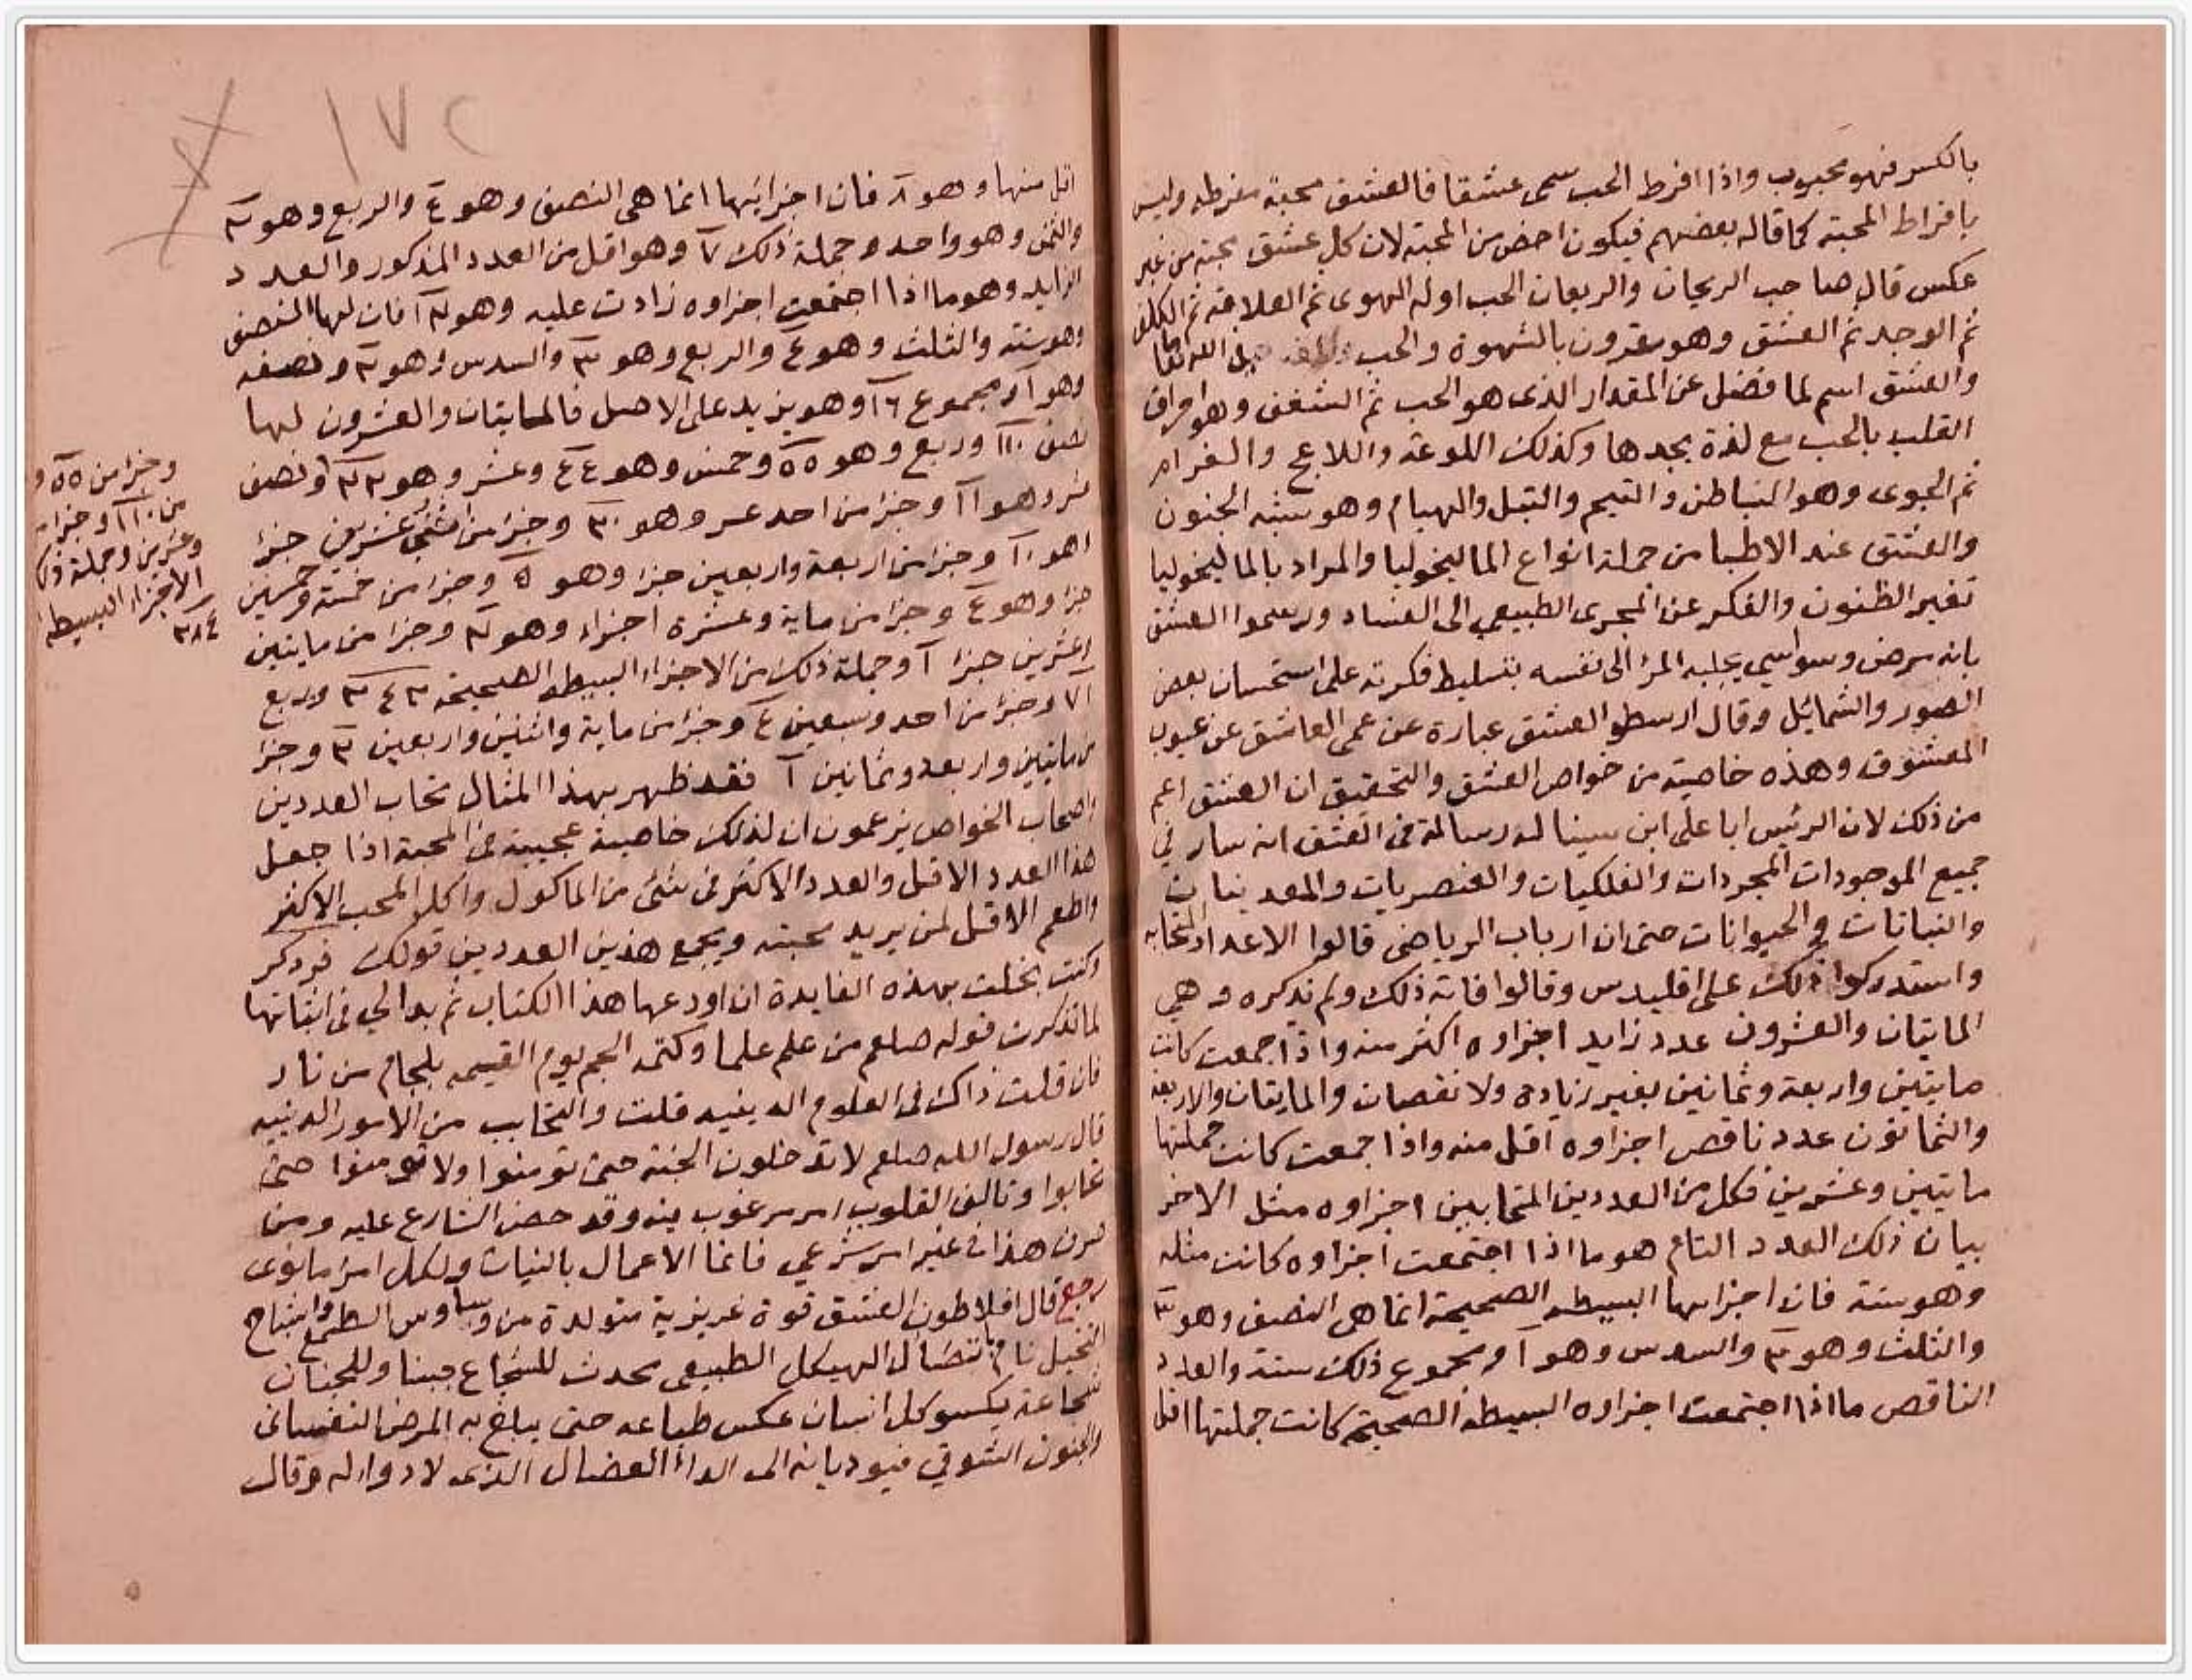 بالكسر فهو محبوب واذا افرط الحب سمى عشقا فالعشق محبة مفرطه وليس
بافراط المحبته كما قاله بعضهم فيكون اخص من المحبته لان كل عشق محبته من غير
عكس قال صاحب الريحان والريعان الحب اوله الهوى ثم العلاقه ثم الكلف
ثم الوجد ثم العشق وهو مقرون بالشهوة والحب
والعشق اسم لما فضل عن المقدار الذى هو الحب ثم الشغف وهو احراق
القلب بالحب مع لذة يجدها وكذلك اللوعة واللاعج والغرام
ثم الجوى وهو الباطن والتيم والتبل والهيام وهو شبه الجنون
والعشق عند الاطبا من جملة انواع الماليخوليا والمراد بالماليخوليا
تغير الظنون والفكر عن المجرى الطبيعي الى الفساد العشق
بانه مرض وسواسي يجلبه المرؤ الى نفسه بتسليط فكرته على استحسان بعض
الصور والشمايل وقال ارسطو العشق عبارة عن عمى العاشق عن عيوب
المعشوق وهذه خاصيته من خواص العشق والتحقيق ان العشق اعم
من ذلك لان الرئيس ابا على ابن سينا له رسالة فى العشق انه سار في
جميع الموجودات المجردات والفلكيات والعنصريات والمعدنيات
والنباتات والحيوانات حتى ان ارباب الرياضى قالوا الاعداد المتحابه
واستدركوا ذلك على اقليدس وقالوا فاته ذلك ولم يذكره وهي
المايتان والعشرون عدد زايد اجزاوه اكثر منه واذا جمعت كانت
مايتين واربعة وثمانين بغير زيادة ولا نقصان والمايتان والاربعة
والثمانون عدد ناقص اجزاوه اقل منه واذا جمعت كانت جملتها
مايتين وعشرين فكل من العددين المتحابين اجزاوه مثل الاخر
بيان ذلك العدد التام هو ما اذا اجتمعت اجزاوه كانت مثله
وهو ستة فان اجزاءها البسيطه الصحيحة انما هى النصف وهو ٣
والثلث وهو ٢ والسدس وهو ١ ومجموع ذلك ستة والعدد
الناقص ما اذا اجتمعت اجزاوه البسيطه الصحيحة كانت جملتها اقل
١٧٢
اقل منها وهو ٨ فان اجزائها انما هى النصف وهو ٤ والربع وهو ٢
والثمن وهو واحد وجملة ذلك ٧ وهو اقل من العدد المذكور والعدد
الزايد وهو ما اذا اجتمعت اجزاوه زادت عليه وهو ١٢ فان لها النصف
وهو ستة والثلث وهو ٤ والربع وهو ٣ والسدس وهو ٢ ونصفه
وهو ١ ومجموع ١٦ وهو يزيد على الاصل فالمايتان والعشرون لها
نصف ١١٠ وربع وهو ٥٥ وخمس وهو ٤٤ وعشر وهو ٢٢ ونصف
عشر وهو ١١ وجزا من احد عشر وهو ٢٠ وجزا من اثنى عشرين جزا
وهو ١٠ وجزا من اربعة واربعين جزا وهو ٥ وجزا من خمسة وخمسين
جزا وهو ٤ وجزا من ماية وعشرة اجزاء وهو ٢ وجزا من مايتين
وعشرين جزا ١ وجملة ذلك من الاجزاء البسيطه الصحيحة وربع
٧١ وجزا من احد وسبعين ٤ وجزا من ماية واثنين واربعين ٢ وجزا
من مايتين واربعة وثمانين ١ فقد ظهر بهذا المثال تحاب العددين
واصحاب الخواص يزعمون ان لذلك خاصية عجيبة فى المحبة اذا جعل
هذا العدد الاقل والعدد الاكثر فى شئ من الماكول واكل المحب الاكثر
واطعم الاقل لمن يريد محبته ويجمع هذين العددين قولك فرد كر
وكنت بخلت بهذه الفايدة ان اودعها هذا الكتاب ثم بدا لي فى اثباتها
لما تذكرت قوله صلعم من علم علما وكتمه الجم يوم القيمه بلجام من نار
فان قلت ذاك فى العلوم الدينيه قلت والتحابب من الامور الدينيه
قال رسول الله صلعم لا تدخلون الجنة حتى تومنوا ولا تومنوا حتى
تحابوا وتالف القلوب امر مرغوب فيه وقد حض الشارع عليه ومن
صرف هذا فى غير امر شرعي فانما الاعمال بالنيات ولكل امرئ ما نوى
رجع قال افلاطون العشق قوة غريزية متولدة من وساوس الطمع واشباح
التخيل نام باتصال الهيكل الطبيعى يحدث للشجاع جبنا وللجبان
شجاعة يكسو كل انسان عكس طباعه حتى يبلغ به المرض النفسانى
والجنون الشوقي فيوديانه الى الداء العضال الذى لا دوا له وقال
وجزا من ٥٥ و
من ١١٠ وجزا
وعشرين وجملة ذلك
الاجزاء البسيطه
٢٨٤